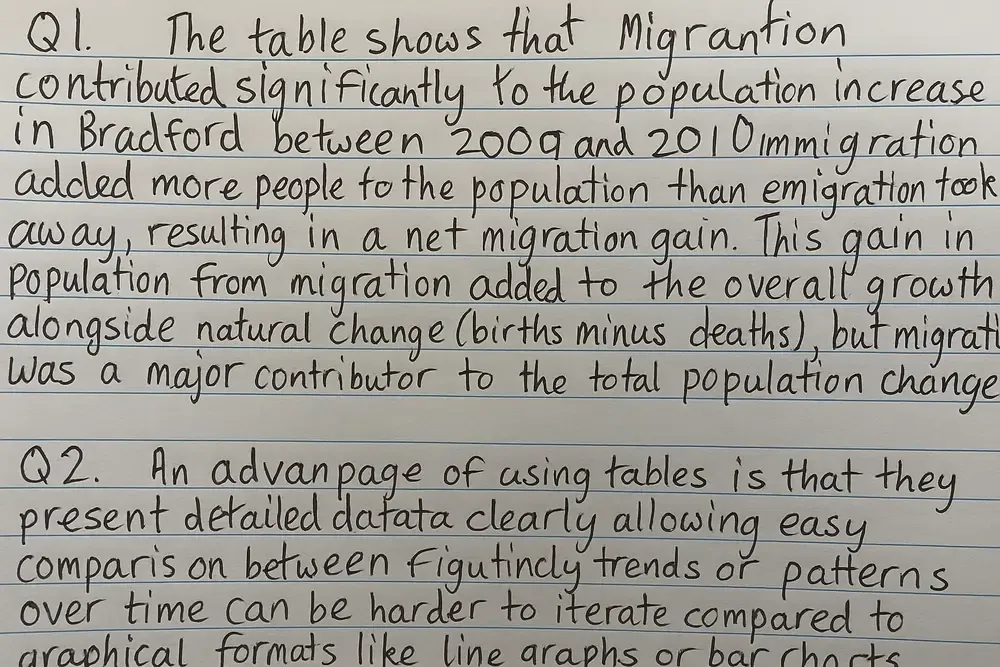 Q1. The table shows that Migrantion
contributed significantly to the population increase
in Bradford between 2009 and 2010 immigration
added more people to the population than emigration took
away, resulting in a net migration gain. This gain in
population from migration added to the overall growth
alongside natural change (births minus deaths), but migrati
was a major contributor to the total population change
Q2. An advanpage of using tables is that they
present detailed datata clearly allowing easy
comparison between figutincly trends or patterns
over time can be harder to iterate compared to
graphical formats like line graphs or bar charts